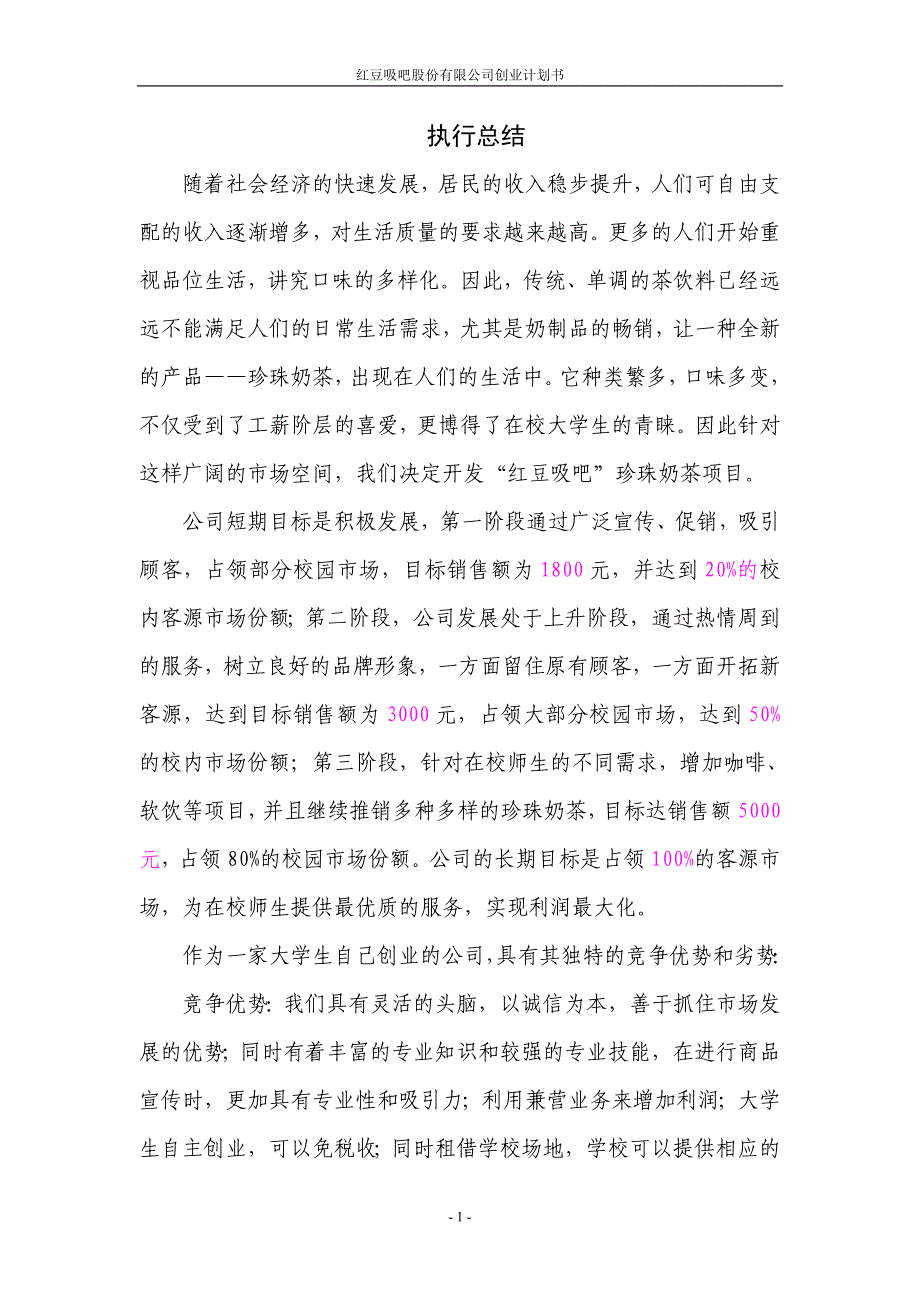 红豆吸吧股份有限公司创业计划书
执行总结
随着社会经济的快速发展，居民的收入稳步提升，人们可自由支
配的收入逐渐增多，对生活质量的要求越来越高。更多的人们开始重
视品位生活，讲究口味的多样化。因此，传统、单调的茶饮料已经远
远不能满足人们的日常生活需求，尤其是奶制品的畅销，让一种全新
的产品——珍珠奶茶，出现在人们的生活中。它种类繁多，口味多变，
不仅受到了工薪阶层的喜爱，更博得了在校大学生的青睐。因此针对
这样广阔的市场空间，我们决定开发“红豆吸吧”珍珠奶茶项目。
公司短期目标是积极发展，第一阶段通过广泛宣传、促销，吸引
顾客，占领部分校园市场，目标销售额为 1800 元，并达到 20%的校
内客源市场份额；第二阶段，公司发展处于上升阶段，通过热情周到
的服务，树立良好的品牌形象，一方面留住原有顾客，一方面开拓新
客源，达到目标销售额为 3000 元，占领大部分校园市场，达到 50%
的校内市场份额；第三阶段，针对在校师生的不同需求，增加咖啡、
软饮等项目，并且继续推销多种多样的珍珠奶茶，目标达销售额 5000
元，占领 80%的校园市场份额。公司的长期目标是占领 100%的客源市
场，为在校师生提供最优质的服务，实现利润最大化。
作为一家大学生自己创业的公司，具有其独特的竞争优势和劣势：
竞争优势：我们具有灵活的头脑，以诚信为本，善于抓住市场发
展的优势；同时有着丰富的专业知识和较强的专业技能，在进行商品
宣传时，更加具有专业性和吸引力；利用兼营业务来增加利润；大学
生自主创业，可以免税收；同时租借学校场地，学校可以提供相应的
- 1 -